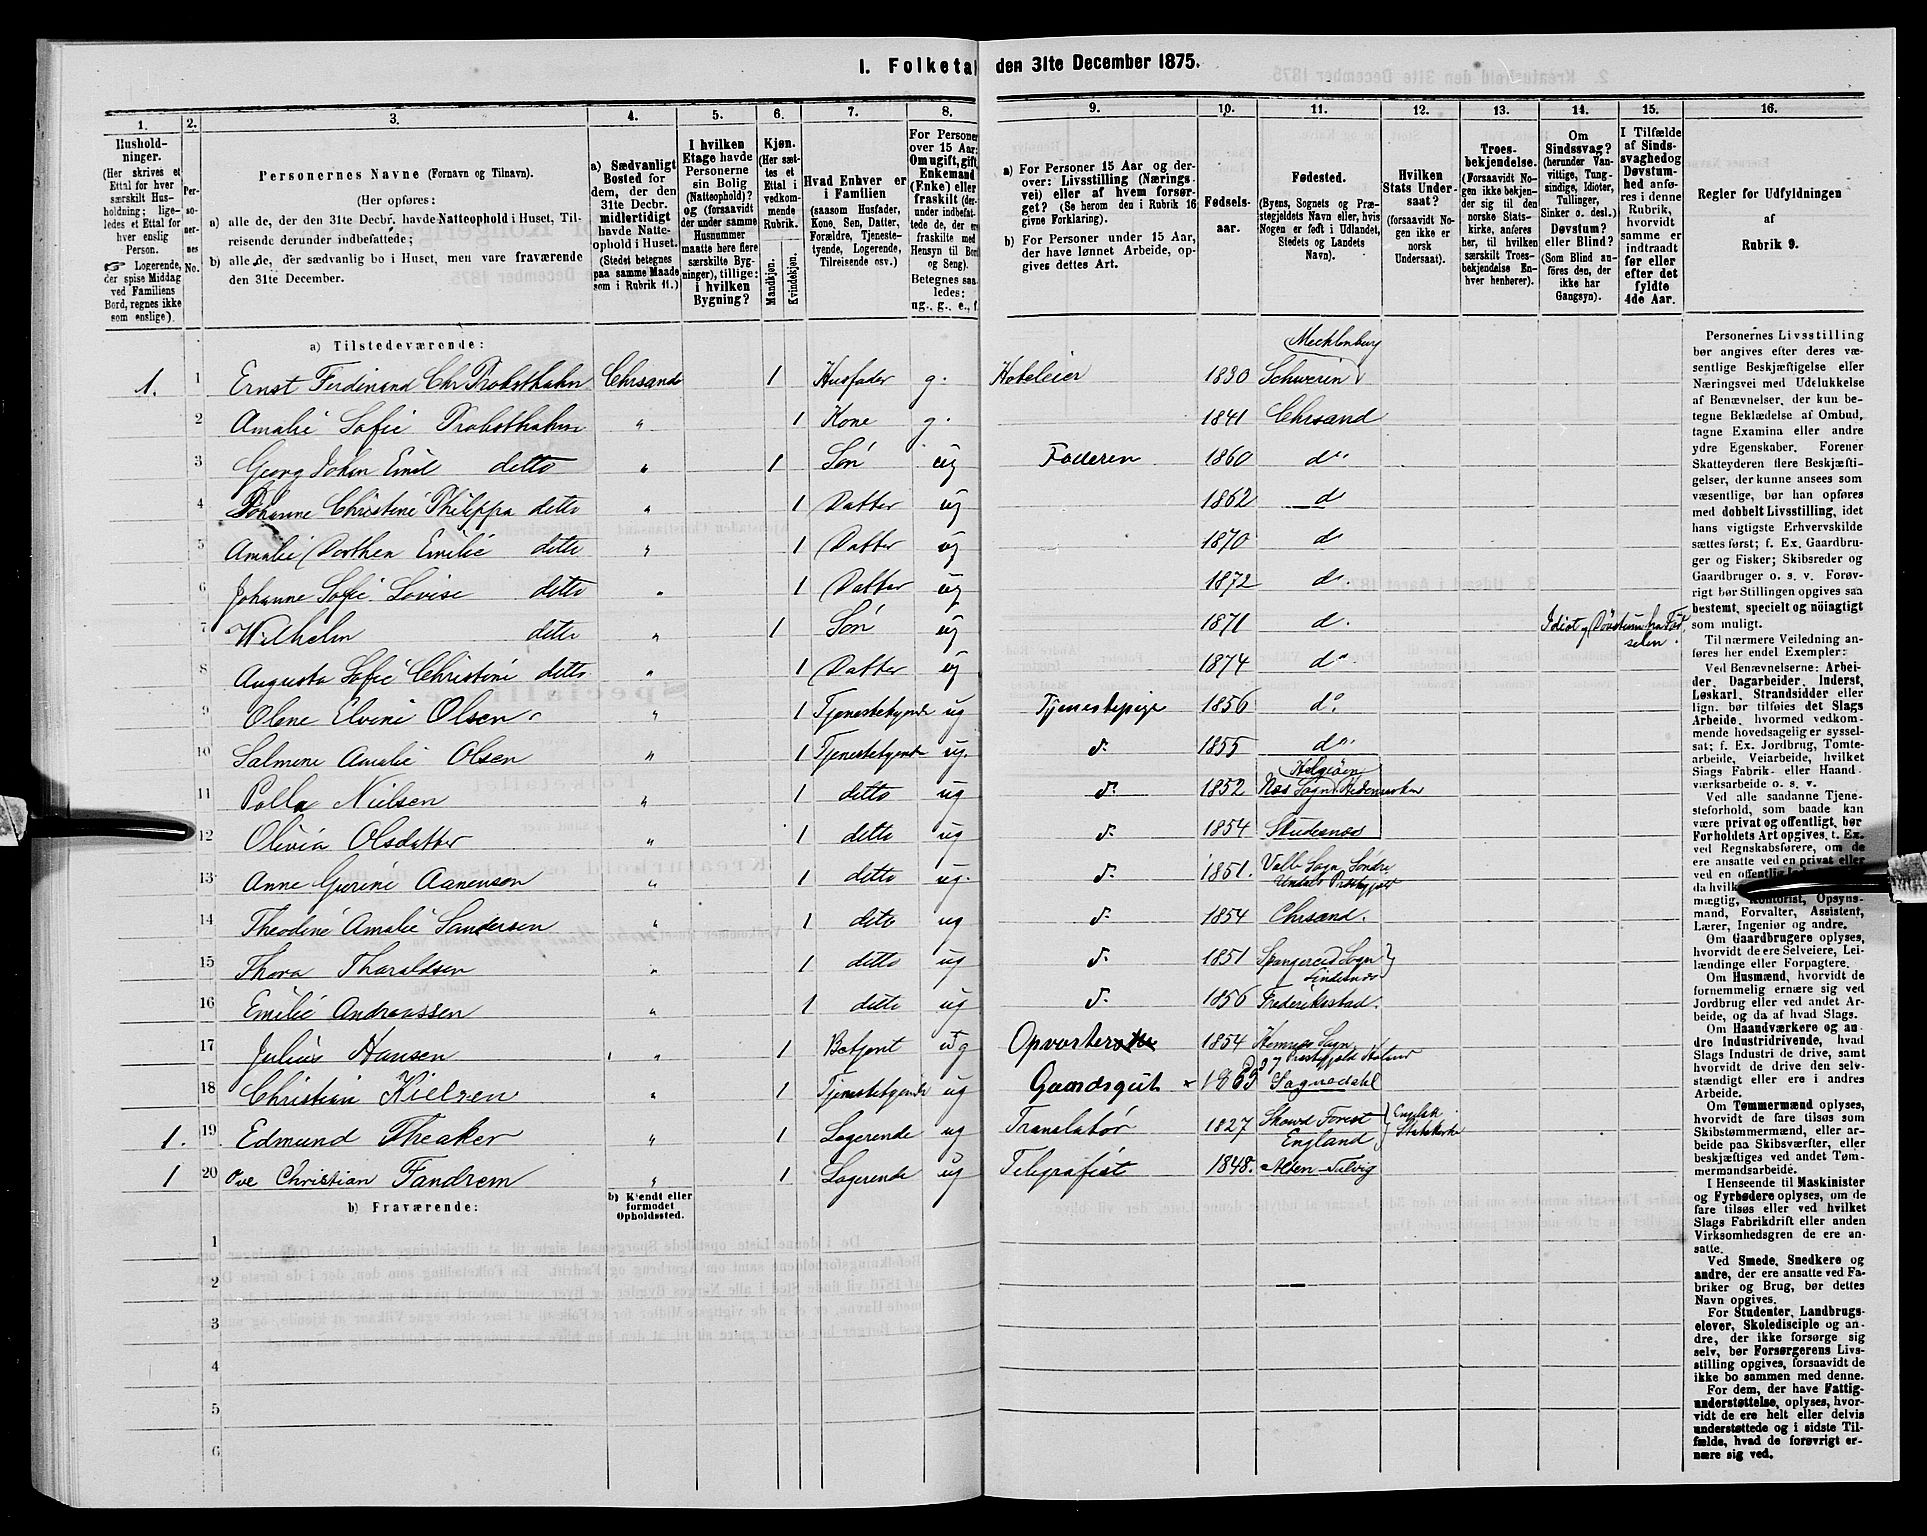 1. Folketal den 31te December 1875.
1. 2. 3. 4. 5. 6. 7. 8. 9. 10. 11. 12. 13. 14. 15. 16.
Hushold-
ninger.
(Her skrives et
Ettal for hver
særskilt Hus-
holdning; lige-
ledes et Ettal for
hver enslig
Person.
☞ Logerende,
der spise Middag
ved Familiens
Bord, regnes ikke
som enslige).
Per-
so-
ner-
nes
No.
Personernes Navne (Fornavn og Tilnavn).
(Her opføres:
a) alle de, der den 31te Decbr. havde Natteophold i Huset, Til-
reisende derunder indbefattede;
b) alle de, der sædvanlig bo i Huset, men vare fraværende
den 31te December.
a) Sædvanligt
Bosted for
dem, der den
31te Decbr.
midlertidigt
havde Natte-
ophold i Huset.
(Stedet betegnes
paa samme Maade
som i Rubrik 11.)
I hvilken
Etage havde
Personerne
sin Bolig
(Natteophold)?
og (forsaavidt
der under samme
Husnummer
maatte høre flere
særskilte Byg-
ninger), tillige:
i hvilken
Bygning?
Kjøn.
(Her sæt-
tes et
Ettal i
vedkom-
mende
Rubrik.
Mandkjøn.
Kvindekjøn.
Hvad Enhver er
i Familien
(saasom Husfader,
Kone, Søn, Datter,
Forældre, Tjeneste-
tyende, Logerende,
Tilreisende osv.)
For Personer
over 15 Aar:
Om ugift, gift,
Enkemand
(Enke) eller
fraskilt (der-
under indbefat-
tede de, der ere
fraskilte med
Hensyn til Bord
og Seng).
Betegnes saa-
ledes:
ug., g., e., f.
a) For Personer 15 Aar og der-
over: Livsstilling (Nærings-
vei) eller af hvem forsør-
get? (Se herom den i Rubrik 16
givne Forklaring).
b) For Personer under 15 Aar,
der have lønnet Arbeide, op-
gives dettes Art.
Fødsels-
aar.
Fødested.
(Byens, Sognets og Præ-
stegjeldets Navn eller, hvis
Nogen er født i Udlandet,
Stedets og Landets
Navn).
Hvilken
Stats Under-
saat?
(forsaavidt No-
gen ikke er
norsk
Undersaat).
Troes-
bekjendelse.
(Forsaavidt No-
gen ikke bekjen-
der sig til den
norske Stats-
kirke, anføres
her, til hvilken
særskilt Troes-
bekjendelse En-
hver henhører).
Om
Sindssvag?
(herunder Van-
vittige, Tung-
sindige, Idioter,
Tullinger,
Sinker o. desl.)
Døvstum?
eller Blind?
(Som Blind an-
føres den, der
ikke har
Gangsyn).
I Tilfælde
af Sinds-
svaghed og
Døvstum-
hed anfø-
res i denne
Rubrik,
hvorvidt
samme er
indtraadt
før eller
efter det
fyldte
4de Aar.
Regler for Udfyldningen
af
Rubrik 9.
a) Tilstedeværende:
1. 1 Ernst Ferdinand Chr Probsthahn Chrsand 1 Husfader g. Hoteleier 1830 Mecklenburg Schwerin
2 Amalie Sofie Probsthahn " 1 Kone g. 1841 Chrsand
3 Georg Johan Emil ditto " 1 Søn ug Faderen 1860 do
4 Johanne Christine Philippa ditto " 1 Datter ug 1862 d
5 Amalie Dorthea Emilie ditto " 1 Datter ug 1870 d
6 Johanne Sofie Lovise ditto " 1 Datter ug 1872 d.
7 Wilhelm ditto " 1 Søn ug 1871 d. Idiot og Døvstum fra Fød-
selen.
8 Augusta Sofie Christine ditto " 1 Datter ug 1874 do
9 Olene Elvine Olsen " 1 Tjenestetyende ug Tjenestepige 1856 do
10 Salmine Amalie Olsen " 1 Tjenestetyende ug. d. 1855 do
11 Polla Nielsen " 1 ditto ug d. 1852 Helgeøen
Næs Sogn Hedemarken
12 Olivia Olsdatter " 1 ditto ug d. 1854 Skudesnæs
13 Anne Gurine Aanenson " 1 ditto ug. d. 1851. Valle Sogn, Søndre
Undals Prestgjæld
14 Theodine Amalie Sandersen " 1 ditto ug d. 1854 Chrsand.
15 Thora Tharaldsen " 1 ditto ug d. 1851 Spangereid Sogn
Lindesnæs
16 Emilie Andreassen " 1 ditto ug d. 1856 Frederiksstad.
17 Julius Hansen " 1 Betjent ug Opvarter 1854
18 Christian Nielsen " 1 Tjenestetyende ug Gaardsgut 1865 Sognedahl
1. 19 Edmund Theaker " 1 Logerende ug Translatør 1827 Forest
England Engelsk
1 20 Ove Christian Fandrem " 1 Logerende ug Telegrafist 1848. Alten-Talvig
b) Fraværende:
b) Kjendt eller
formodet
Opholdssted.
1
2
3
4
5
6
Personernes Livsstilling
bør angives efter deres væ-
sentlige Beskjæftigelse eller
Næringsvei med Udelukkelse
af Benævnelser, der kun be-
tegne Beklædelse af Ombud,
tagne Examina eller andre
ydre Egenskaber. Forener
Skatteyderen flere Beskjæfti-
gelser, der kunne ansees som
væsentlige, bør han opføres
med dobbelt Livsstilling, idet
hans vigtigste Erhvervskilde
sættes først; f. Ex. Gaardbru-
ger og Fisker; Skibsreder og
Gaardbruger o. s. v. Forøv-
rigt bør Stillingen opgives saa
bestemt, specielt og nöiagtigt
som muligt.
Til nærmere Veiledning an-
føres her endel Exempler:
Ved Benævnelserne: Arbei-
der, Dagarbeider, Inderst,
Løskarl, Strandsidder eller
lign. bør tilføies det Slags
Arbeide, hvormed vedkom-
mende hovedsagelig er syssel-
sat; f. Ex. Jordbrug, Tomte-
arbeide, Veiarbeide, hvilket
Slags Fabrik- eller Haand-
værksarbeide o. s. v.
Ved alle saadanne Tjene-
steforhold, som baade kan
være privat og offentligt, bør
Forholdets Art opgives, t. Ex.
ved Regnskabsførere, om de
ere ansatte ved en privat eller
ved en offentlig
da hvilk
mægtig, Kontorist, Opsyns-
mand, Forvalter, Assistent,
Lærer, Ingeniør og andre.
Om Gaardbrugere oplyses,
hvorvidt de ere Selveiere, Lei-
lændinge eller Forpagtere.
Om Husmænd, hvorvidt de
fornemmelig ernære sig ved
Jordbrug eller ved andet Ar-
beide, og da af hvad Slags.
Om Haandværkere og an-
dre Industridrivende, hvad
Slags Industri de drive, samt
hvorvidt de drive den selv-
stændigt eller ere i andres
Arbeide.
Om Tømmermænd oplyses,
hvorvidt de fare tilsøs som
Skibstømmermænd, eller ar-
beide paa Skibsværfter, eller
beskjæftiges ved andet Tøm-
mermandsarbeide.
I Henseende til Maskinister
og Fyrbødere oplyses, om de
fare tilsøs eller ved hvilket
Slags Fabrikdrift eller anden
Virksomhedsgren de ere an-
satte.
Ved Smede, Snedkere og
andre, der ere ansatte ved Fa-
briker og Brug, bør dettes
Navn opgives.
For Studenter, Landbrugs-
elever, Skoledisciple og an-
dre, der ikke forsørge sig
selv, bør Forsørgerens Livs-
stilling opgives, forsaavidt de
ikke bo sammen med denne.
For dem, der have Fattig-
understøttelse, oplyses, hvor-
vidt de ere helt eller delvis
understøttede og i sidste Til-
fælde, hvad de forøvrigt er-
nære sig ved.